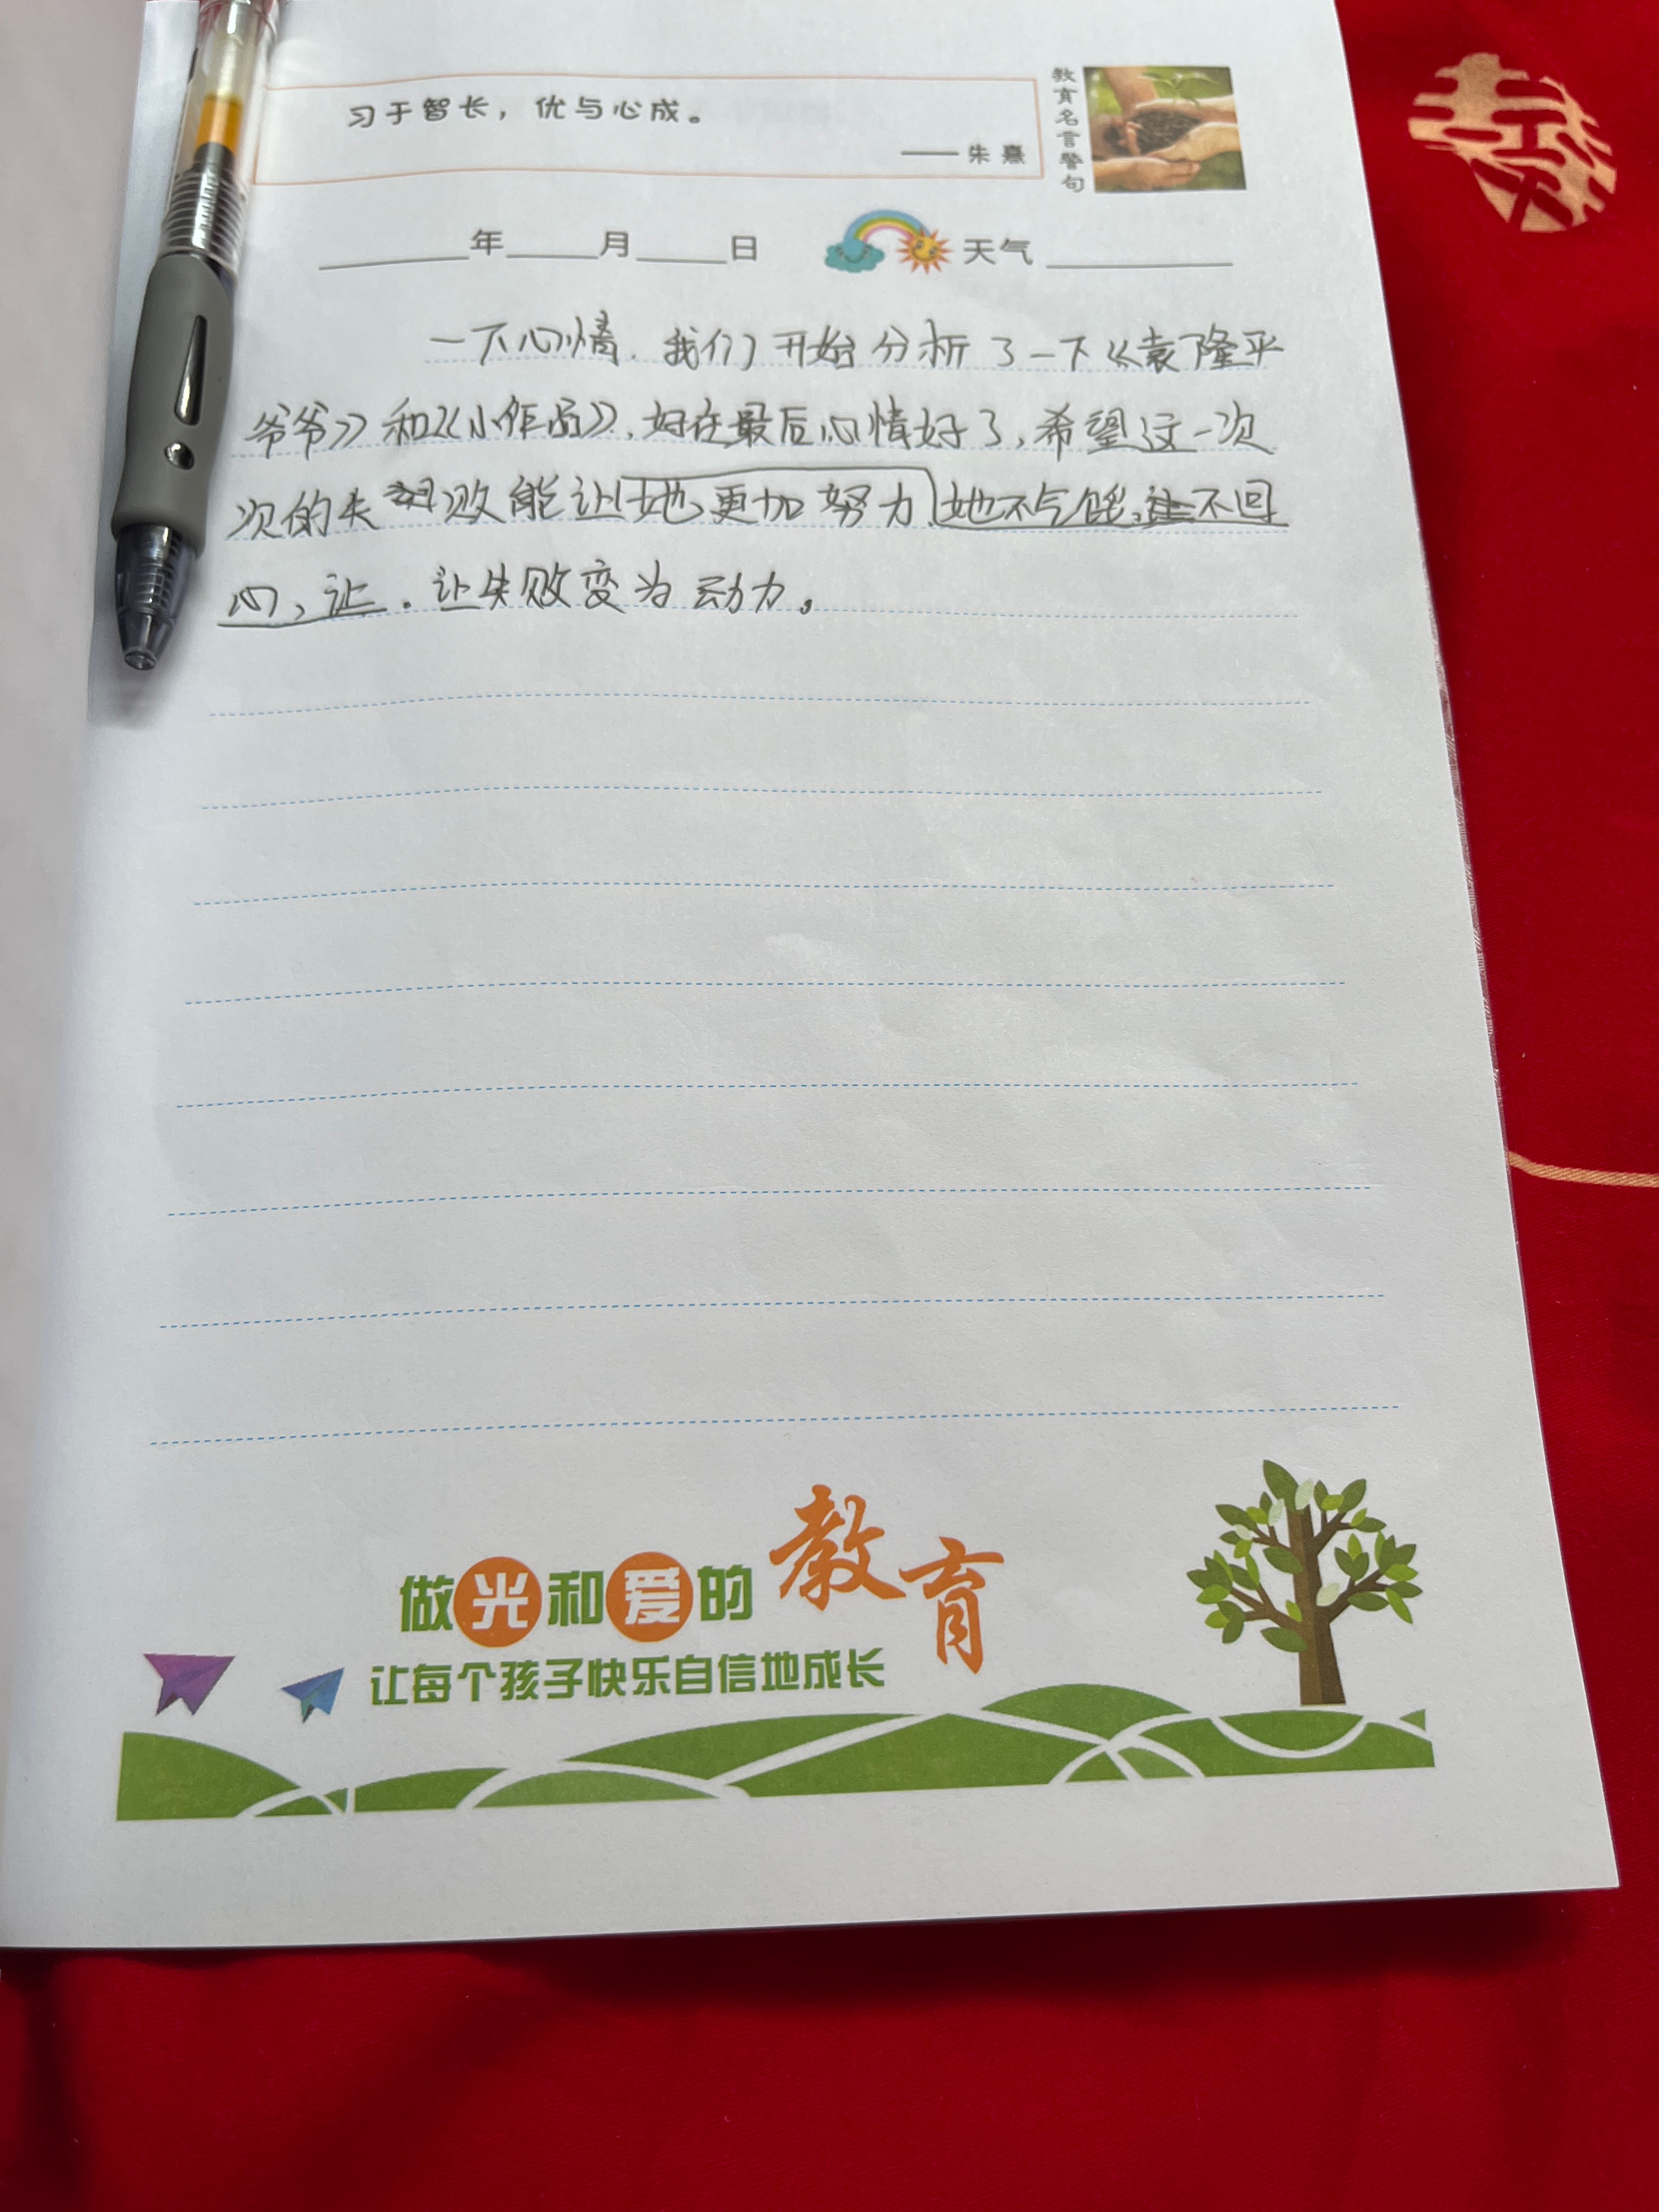 习于智长，优与心成。
——朱熹
教育名言警句
年 月 日 天气
一下心情，我们开始分析了一下《袁隆平
爷爷》和《小作品》，好在最后心情好了，希望这一次
次的失败能让她更加努力，她不气馁，让不回
心，让，让失败变为动力。
做光和爱的教育
让每个孩子快乐自信地成长